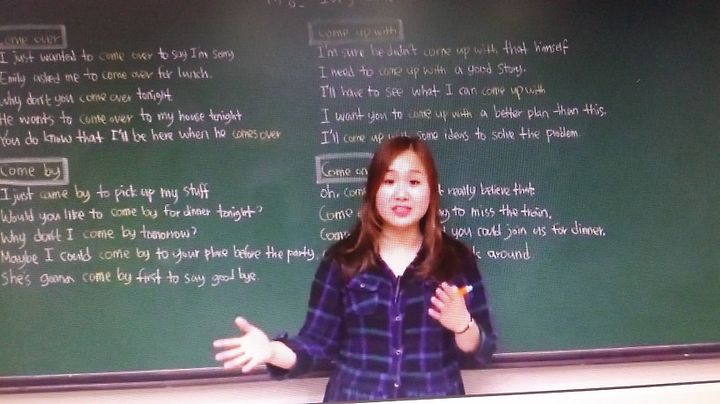 come over
I just wanted to come over to say I'm sorry
Emily asked me to come over for lunch.
Why don't you come over tonight
He wants to come over to my house tonight
You do know that I'll be here when he comes over
come by
I just came by to pick up my stuff
Would you like to come by for dinner tonight?
Why don't I come by tomorrow?
Maybe I could come by to your place before the party.
She's gonna come by first to say good bye.
come up with
I'm sure he didn't come up with that himself
I need to come up with a good story.
I'll have to see what I can come up with
I want you to come up with a better plan than this.
I'll come up with some ideas to solve the problem
Come on
oh, com really believe that
Come to miss the train.
Com you could join us for dinner.
around